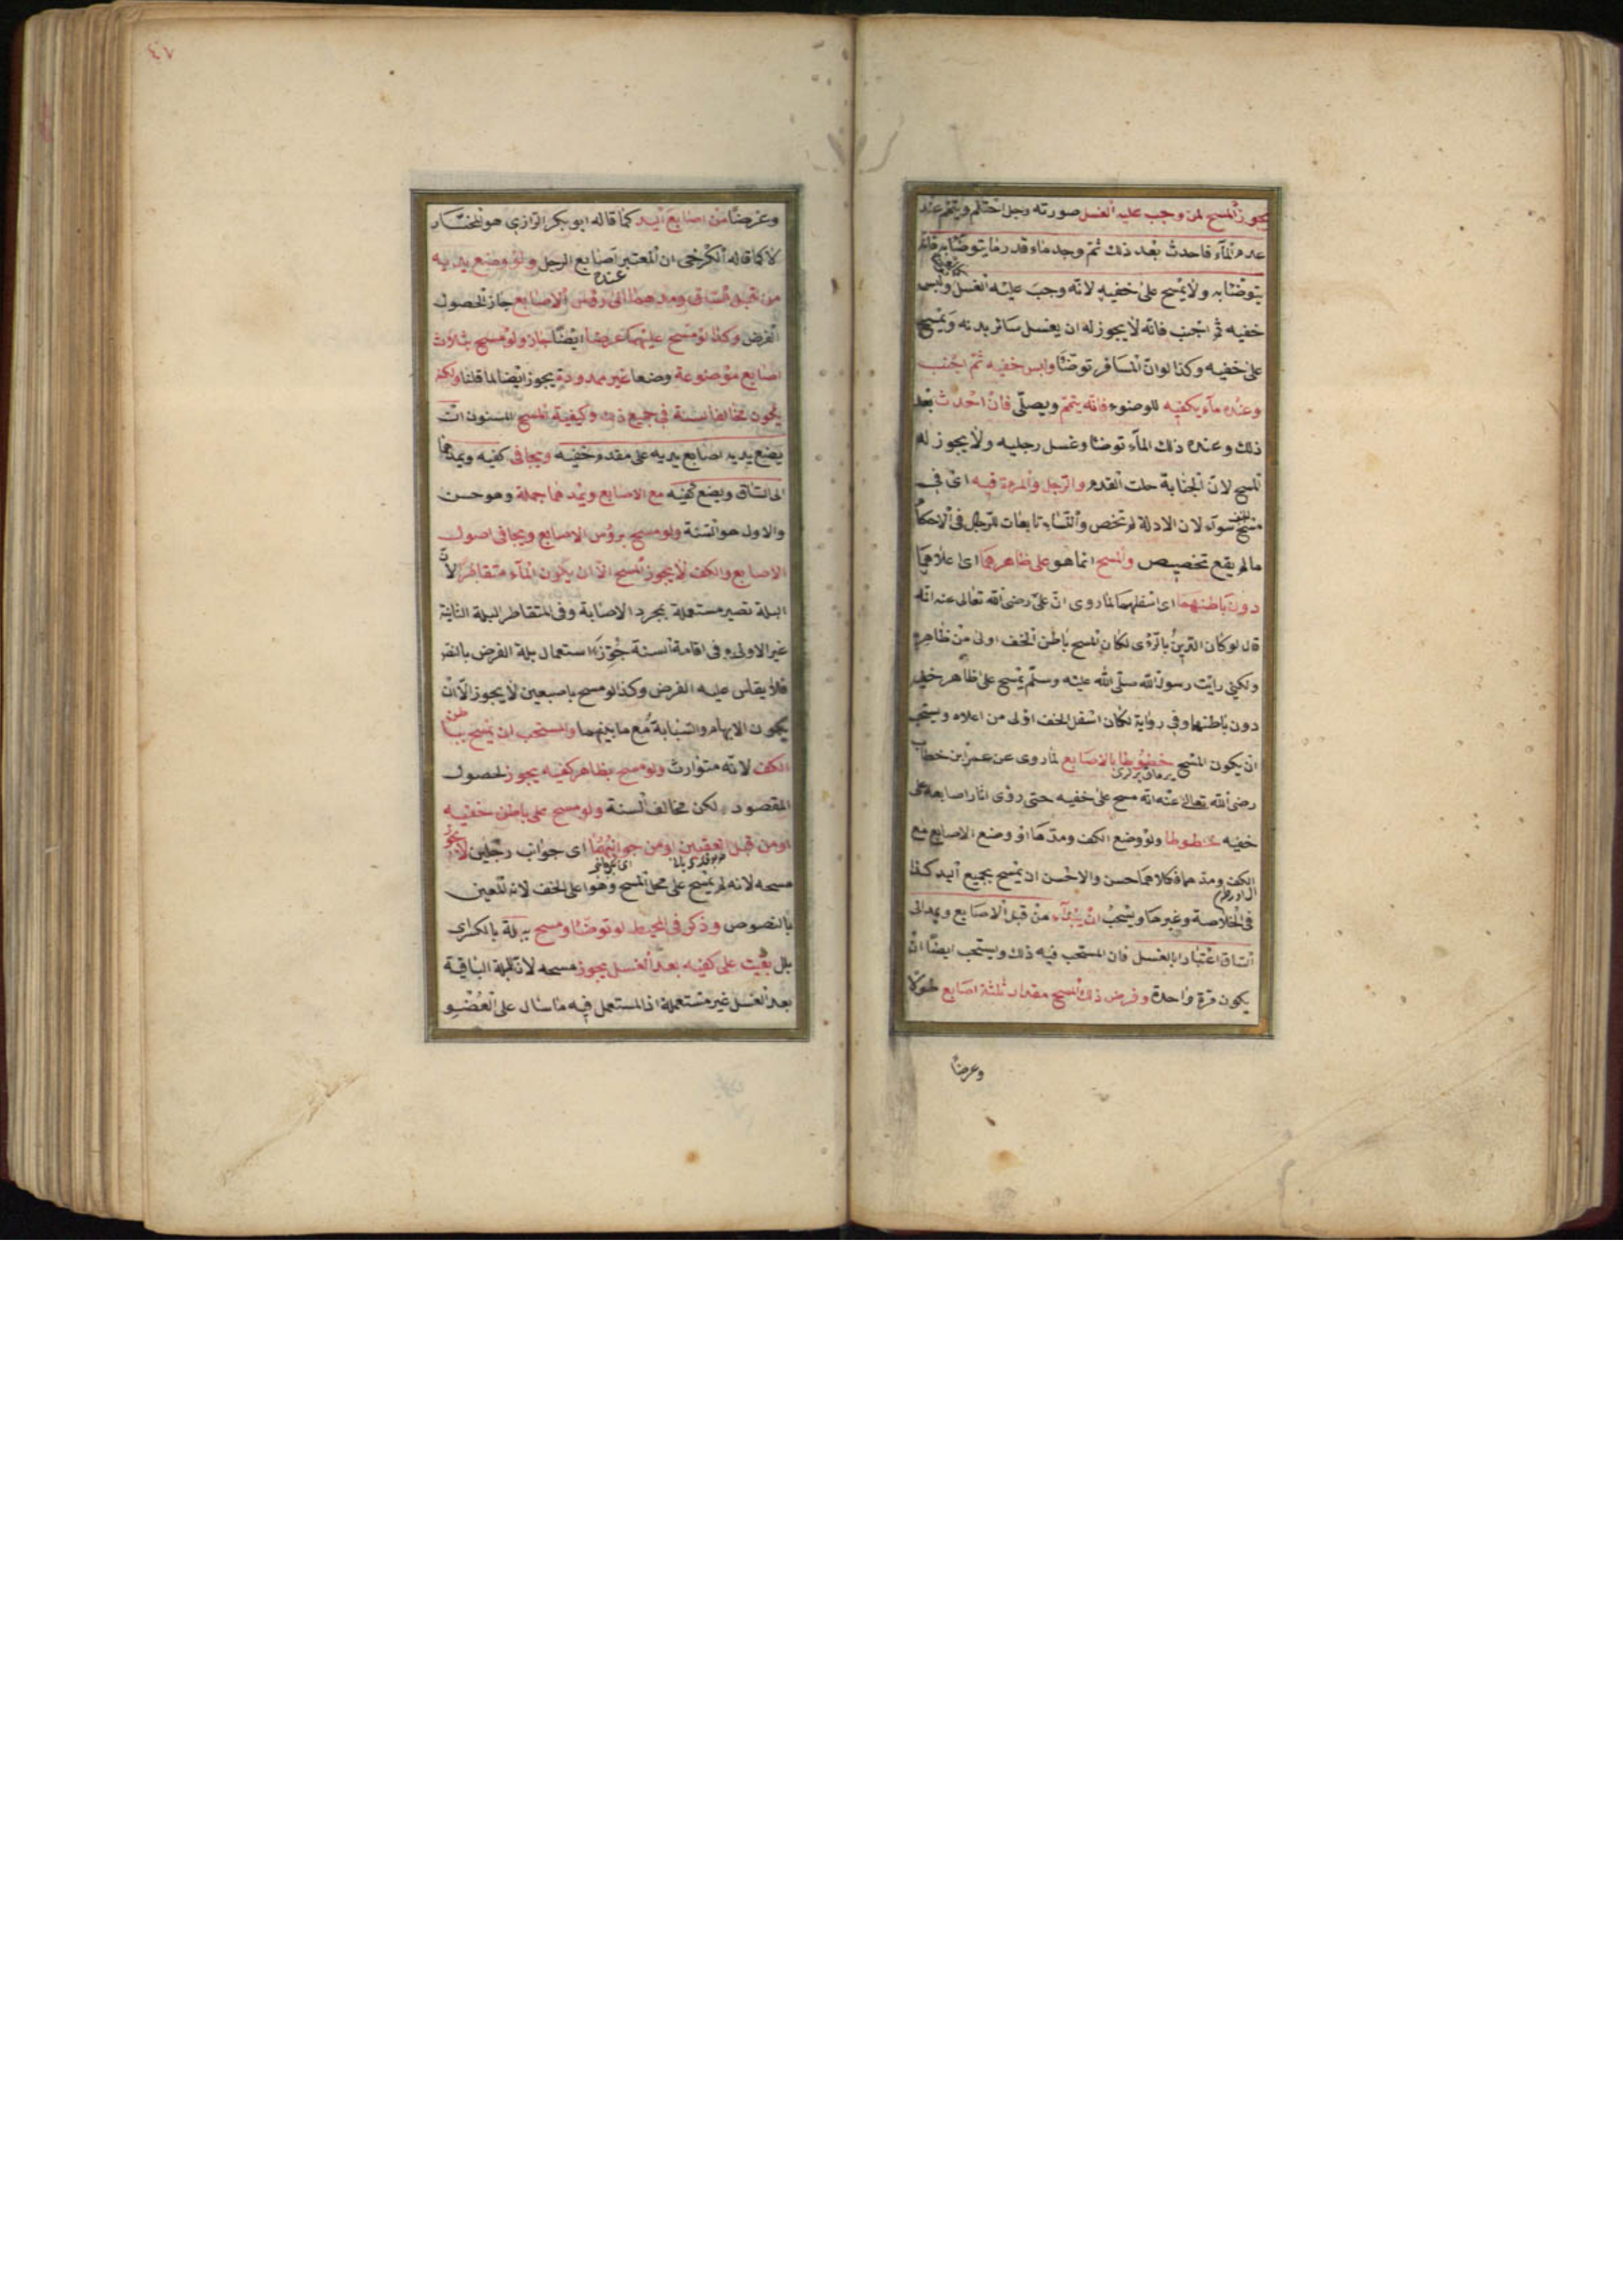 يجوز المسح لمن وجب عليه الغسل صورته رجل احتلم ويتمم عند
عدم الماء فاحدث بعد ذلك ثم وجد ماء قدر ما يتوضأ به فانه
يتوضأ به ولا يمسح على خفيه لانه وجب عليه الغسل ولبس
خفيه ثم اجنب فانه لا يجوز له ان يغسل سائر بدنه ويمسح
على خفيه وكذا لو ان المسافر توضأ ولبس خفيه ثم اجنب
وعنده ماء يكفيه للوضوء فانه يتمم ويصلى فان احدث بعد
ذلك وعنده ذلك الماء توضأ وغسل رجليه ولا يجوز له
المسح لان الجنابة حلت القدم والرجل والمرءة فيه اى فى
مسح الخف سوآء لان الادلة لم تخص والنساء تابعات للرجال فى الاحكام
مالم يقع تخصيص والمسح انما هو على ظاهرهما اى اعلاهما
دون باطنهما اى اسفلهما لما روى ان على رضى الله تعالى عنه انه
قال لو كان الدين بالرؤى لكان المسح باطن الخف اولى من ظاهره
ولكنى رايت رسول الله صلى الله عليه وسلم يمسح على ظاهر خفيه
دون باطنهما وفى رواية لكان اسفل الخف اولى من اعلاه ويستحب
ان يكون المسح خطوطا بالاصابع لما روى عن عمر ابن خطاب
رضى الله تعالى عنه انه مسح على خفيه حتى رؤى اثار اصابعه على
خفيه خطوطا ولو وضع الكف ومدها او وضع الاصابع مع
الكف ومدهما فكلاهما حسن والاحسن ان يمسح بجميع اليد كذا
فى الخلاصة وغيرها ويستحب ان يبدآء من قبل الاصابع ويمد الى
الساق اعتبارا بالغسل فان المستحب فيه ذلك ويستحب ايضا ان
يكون مرة واحدة وفرض ذلك المسح مقدار ثلثة اصابع طولا
وعرضا
٤٧
وعرضا من اصابع اليد كما قاله ابو بكر الرازى هو المختار
لا كما قاله الكرخى ان المعتبر اصابع الرجل ولو وضع يديه
عنده
من قبل الساق ومدهما الى رؤس الاصابع جاز لحصول
الفرض وكذا لو مسح عليهما عرضا ايضا جاز ولو مسح بثلاث
اصابع موضوعة وضعا غير ممدودة يجوز ايضا لما قلنا ولكنه
يكون مخالفا لسنة فى جميع ذلك وكيفية المسح المسنون ان
يضع يديه اصابع يديه على مقدم خفيه ويجافى كفيه ويمدهما
الى الساق ويضع كفيه مع الاصابع ويمدهما جملة وهو حسن
والاول هو السنة ولو مسح برؤس الاصابع ويجافى اصول
الاصابع والكف لا يجوز المسح الا ان يكون الماء متقاطر لان
البلة تصير مستعملة بجرد الاصابة وفى المتقاطر البلة الثانية
غير الاولى وفى اقامة السنة جوز استعمال بلة الفرض بالنفر
فلا يقاس عليه الفرض وكذا لو مسح باصبعين لا يجوز الا ان
يكون الابهام والسبابة مع ما بينهما والمستحب ان يمسح بباطن
الكف لانه متوارث ولو مسح بظاهر كفيه يجوز لحصول
المقصود لكن مخالف السنة ولو مسح على باطن خفيه
او من قبل العقبين او من جوانبهما اى جوانب رجلين لا يجوز
مسحه لانه لم يمسح على محل المسح وهو اعلى الخف لانه المعين
بالنصوص وذكر فى المحيط لو توضأ ومسح ببلة بالكسراى
بلل بقيت على كفيه بعد الغسل يجوز مسحه لان البلة الباقية
بعد الغسل غير مستعملة اذ المستعمل فيه ما سال على العضو